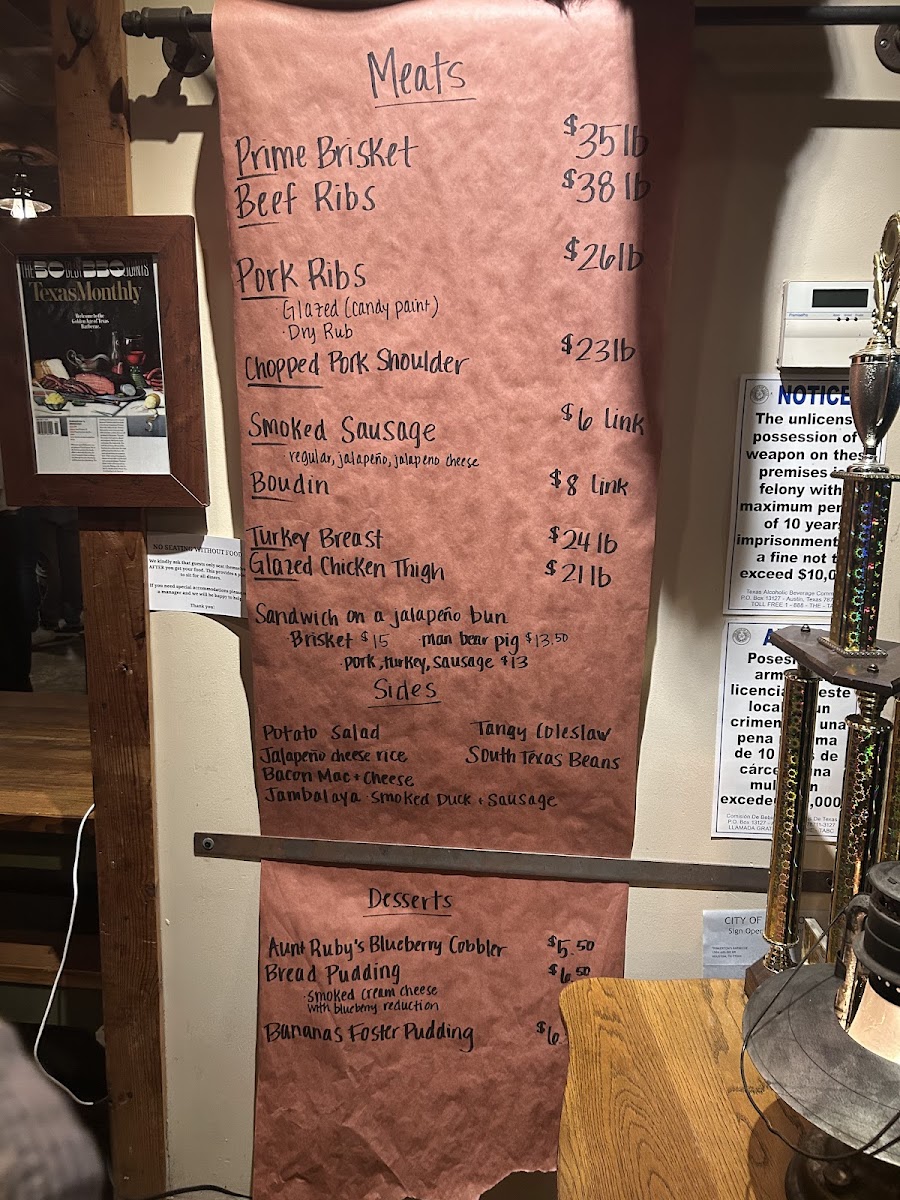 Meats
Prime Brisket $35 lb
Beef Ribs $38 lb
Pork Ribs $26 lb
· Glazed (candy paint)
· Dry Rub
Chopped Pork Shoulder $23 lb
Smoked Sausage $6 link
regular, jalapeño, jalapeno cheese
Boudin $8 link
Turkey Breast $24 lb
Glazed Chicken Thigh $21 lb
Sandwich on a jalapeño bun
Brisket $15 · man bear pig $13.50
· pork, turkey, sausage $13
Sides
Potato Salad Tangy Coleslaw
Jalapeño cheese rice South Texas Beans
Bacon Mac + Cheese
Jambalaya · Smoked Duck + Sausage
Desserts
Aunt Ruby's Blueberry Cobbler $5.50
Bread Pudding $6.50
· smoked cream cheese
with blueberry reduction
Bananas Foster Pudding $6
THE 50 BEST BBQ JOINTS
TexasMonthly
Welcome to the
Golden Age of Texas
Barbecue.
NO SEATING WITHOUT FOOD
We kindly ask that guests only seat
AFTER you get your food. This provides a
to sit for all diners.
If you need special accommodations please
a manager and we will be happy to help
Thank you!
NOTICE
The unlicens
possession of
weapon on thes
premises
felony with
maximum pen
of 10 years
imprisonment
a fine not t
exceed $10,0
Texas Alcoholic Beverage Comm
P.O. Box 13127 - Austin, Texas 787
TOLL FREE 1 - 888 - THE - TA
A
Poses
arm
licencia este
local un
crimen una
pena ma
de 10 s de
cárce na
mul n
excede ,000
P.O. Box 13127
LLAMADA GRAT TABC
CITY OF
Sign Oper